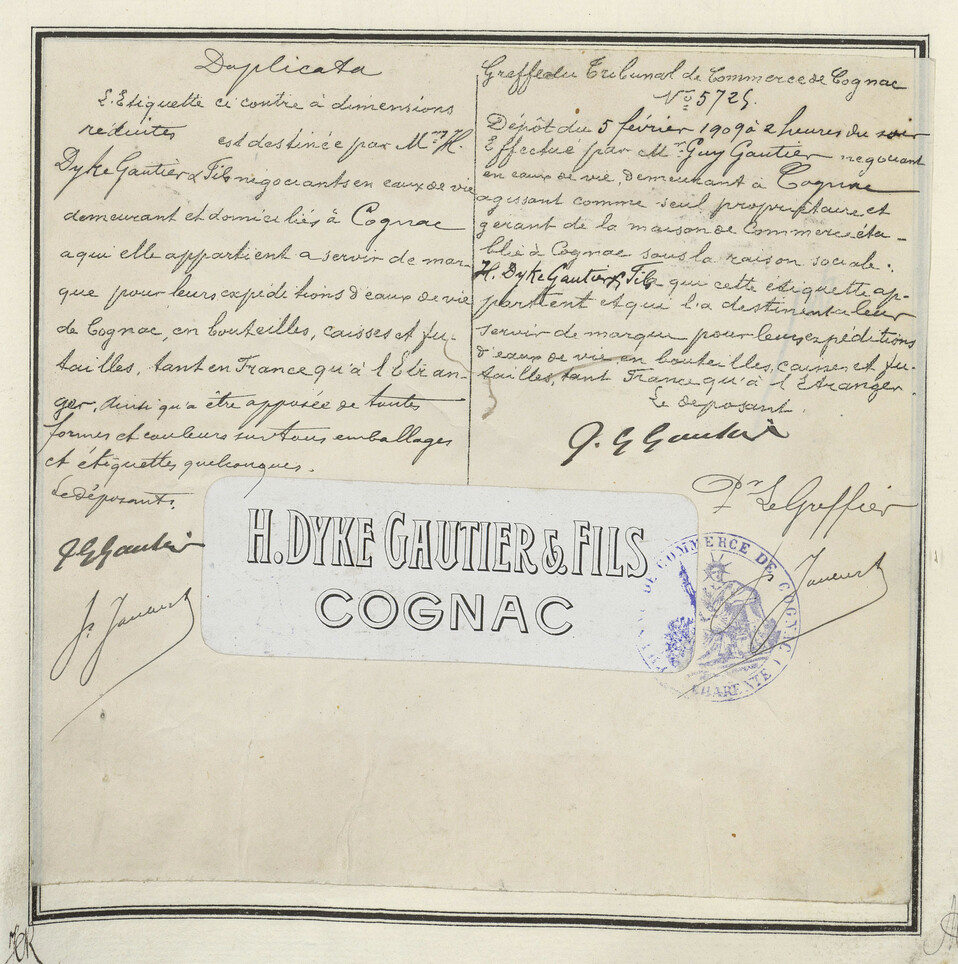 Duplicata
L'Etiquette ci contre à dimensions
réduites est destinée par Mrs H.
Dyke Gautier & Fils négociants en eaux de vie
demeurant et domiciliés à Cognac
a qui elle appartient a servir de mar-
que pour leurs expéditions d'eaux de vie
de Cognac, en bouteilles, caisses et fu-
tailles, tant en France qu'à l'Etran-
ger, ainsi qu'a être apposée de toutes
formes et couleurs sur tous emballages
et étiquettes quelconques.
Le déposant.
J G Gautier
Greffe du Tribunal de Commerce de Cognac
No 5725.
Dépôt du 5 février 1909 à 2 heures du soir
Effectué par Mr. Guy Gautier négociant
en eaux de vie, demeurant à Cognac
agissant comme seul propriétaire et
gérant de la maison de Commerce éta-
blie à Cognac sous la raison sociale :
H. Dyke Gautier & Fils qui cette étiquette ap-
partient et qui l'a destinent a leur
servir de marque pour leurs expéditions
d'eaux de vie en bouteilles, caisses et fu-
tailles, tant France qu'à l'Etranger.
Le déposant.
J. G Gautier
Pr Le Greffier
H. DYKE GAUTIER & FILS
COGNAC
DE COMMERCE DE COGNAC
CHARENTE